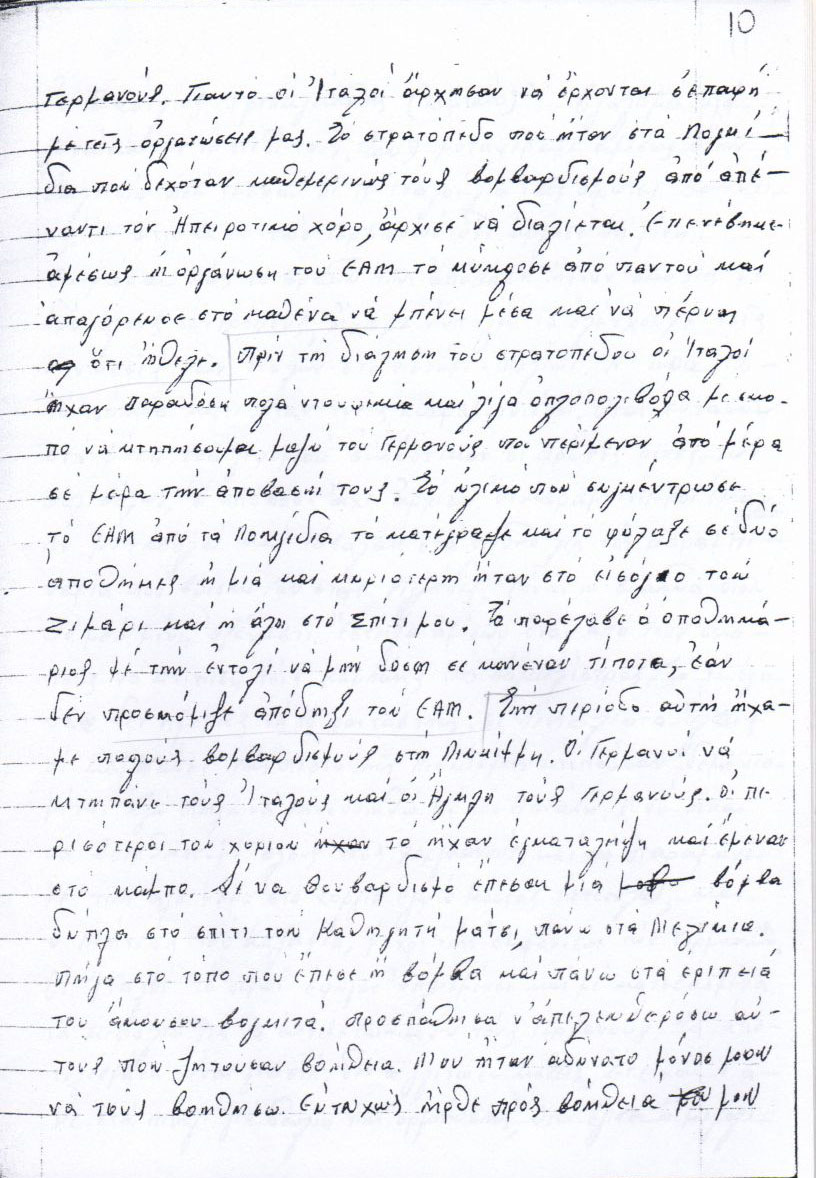 10
Γερμανούς. Γιαυτό οἱ Ἰταλοί ἄρχησαν νά ἔρχονται σέ παφή
μέ τεῖς ὀργανώσεις μας. Τό στρατόπεδο που ἦταν στά
δια που δεχόταν καθεμερινώς τούς βομβαρδισμούς ἀπό ἀπέ-
ναντι τόν Ἠπειροτικό χόρο, ἄρχισε νά διαλίεται. Ἐπενέβηκε
ἀμέσως ἡ ὀργάνωση τού ΕΑΜ τό κύκλοσε ἀπό παντού καί
ἀπαγόρευσε στό καθένα νά μπένει μέσα καί νά πέρνη
ὅτι ἤθελε. Πρίν τη διάληση τού στρατοπέδου οἱ Ἰταλοί
ἤχαν παραδόση πολά ντουφεκια καί λίγα ὁπλοπολιβόλα με σκο-
πο νά κτηπήσουμε μαζύ του Γερμανούς που περίμεναν ἀπό μέρα
σέ μέρα την ἀποβασή τους. Τό ηλικό πού συγκέντρωσε
τό ΕΑΜ ἀπό τά τό κατέγραψε και το φύλαξε σέ δυό
ἀποθήκες ἡ μιά καί κυριότερη ἦταν στό εἰσόγιο τού
Ζιμάρι καί ἡ ἄλη στό Σπίτι μου. Τό παρέλαβε ὁ αποθηκά-
ριος μέ την ἐντολή νά μήν δόση σέ κανέναν τίποτα, ἐάν
δέν προσκόμιζε ἀπόδηξι του ΕΑΜ. Στή περίοδο αὐτή ἤχα-
με πολούς βομβαρδισμούς στή. Οἱ Γερμανοί νά
κτηπάνε τούς Ἰταλούς καί οἱ Ἄγκλη τούς Γερμανούς. Οἱ πε-
ρισότεροι του χοριού ἤχαν τό ἤχαν ἐγκαταλήψη καί ἔμεναν
στό κάμπο. Σέ να βουβαρδισμο ἔπεσαι μιά βόμβα
δήπλα στό σπίτι τού Καθηγητή Μάτσι, πάνω στά
Πήγα στό τόπο πού ἔπεσε ἡ βόμβα καί πάνω στά ἐριπειά
του ἄκουσου βογκιτά. Προσπάθησα ν' ἀπελευδερόσω αυ-
τους πού ζητούσαν βοήθεια. Μού ἦταν ἀδήνατο μόνος μου
νά τούς βοηθήσω. Ευτυχώς ἤρθε πρός βοήθειά μου